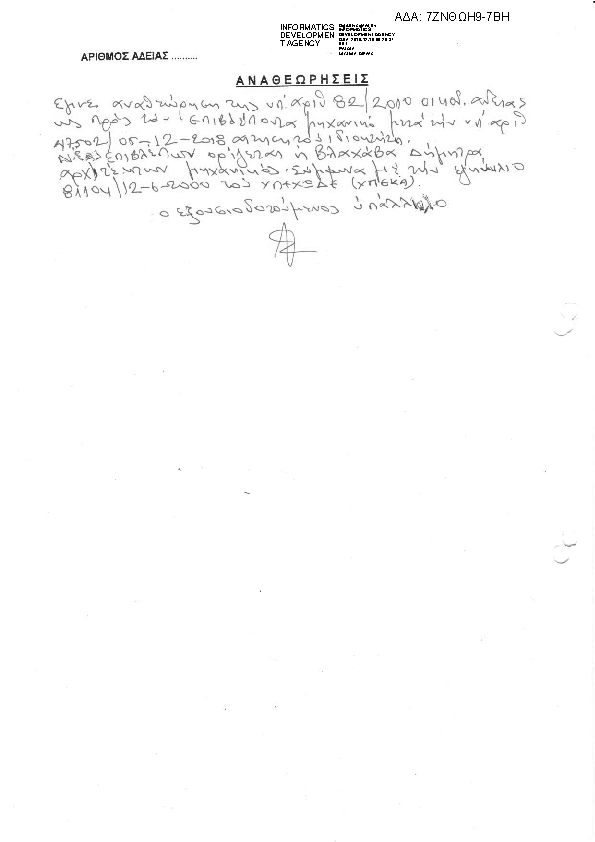 ΑΔΑ: 7ΖΝΘΩΗ9-7ΒΗ
INFORMATICS
DEVELOPMEN
T AGENCY
ΑΡΙΘΜΟΣ ΑΔΕΙΑΣ ..........
ΑΝΑΘΕΩΡΗΣΕΙΣ
Εγινε αναθεώρηση της υπ' αριθ 82/2010 οικοδ. αδειας
ως προς τον επιβλέποντα μηχανικό μετά την υπ' αριθ
47502/05-12-2018 αιτηση του ιδιοκτήτη.
Νέος επιβλέπων ορίζεται η Βλαχάβα Δήμητρα
αρχιτέκτων μηχανικός. Σύμφωνα με την εγκύκλιο
81104/12-6-2000 του ΥΠΕΧΩΔΕ (ΥΠΕΚΑ).
ο εξουσιοδοτούμενος υπάλληλο